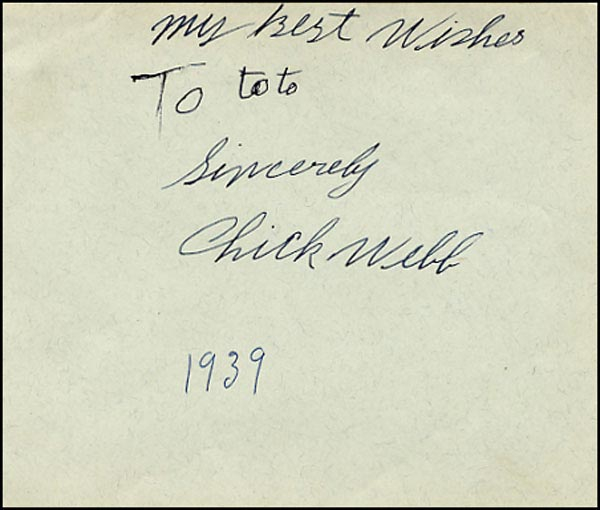 My Best Wishes
To toto
Sincerely
Chick Webb
1939